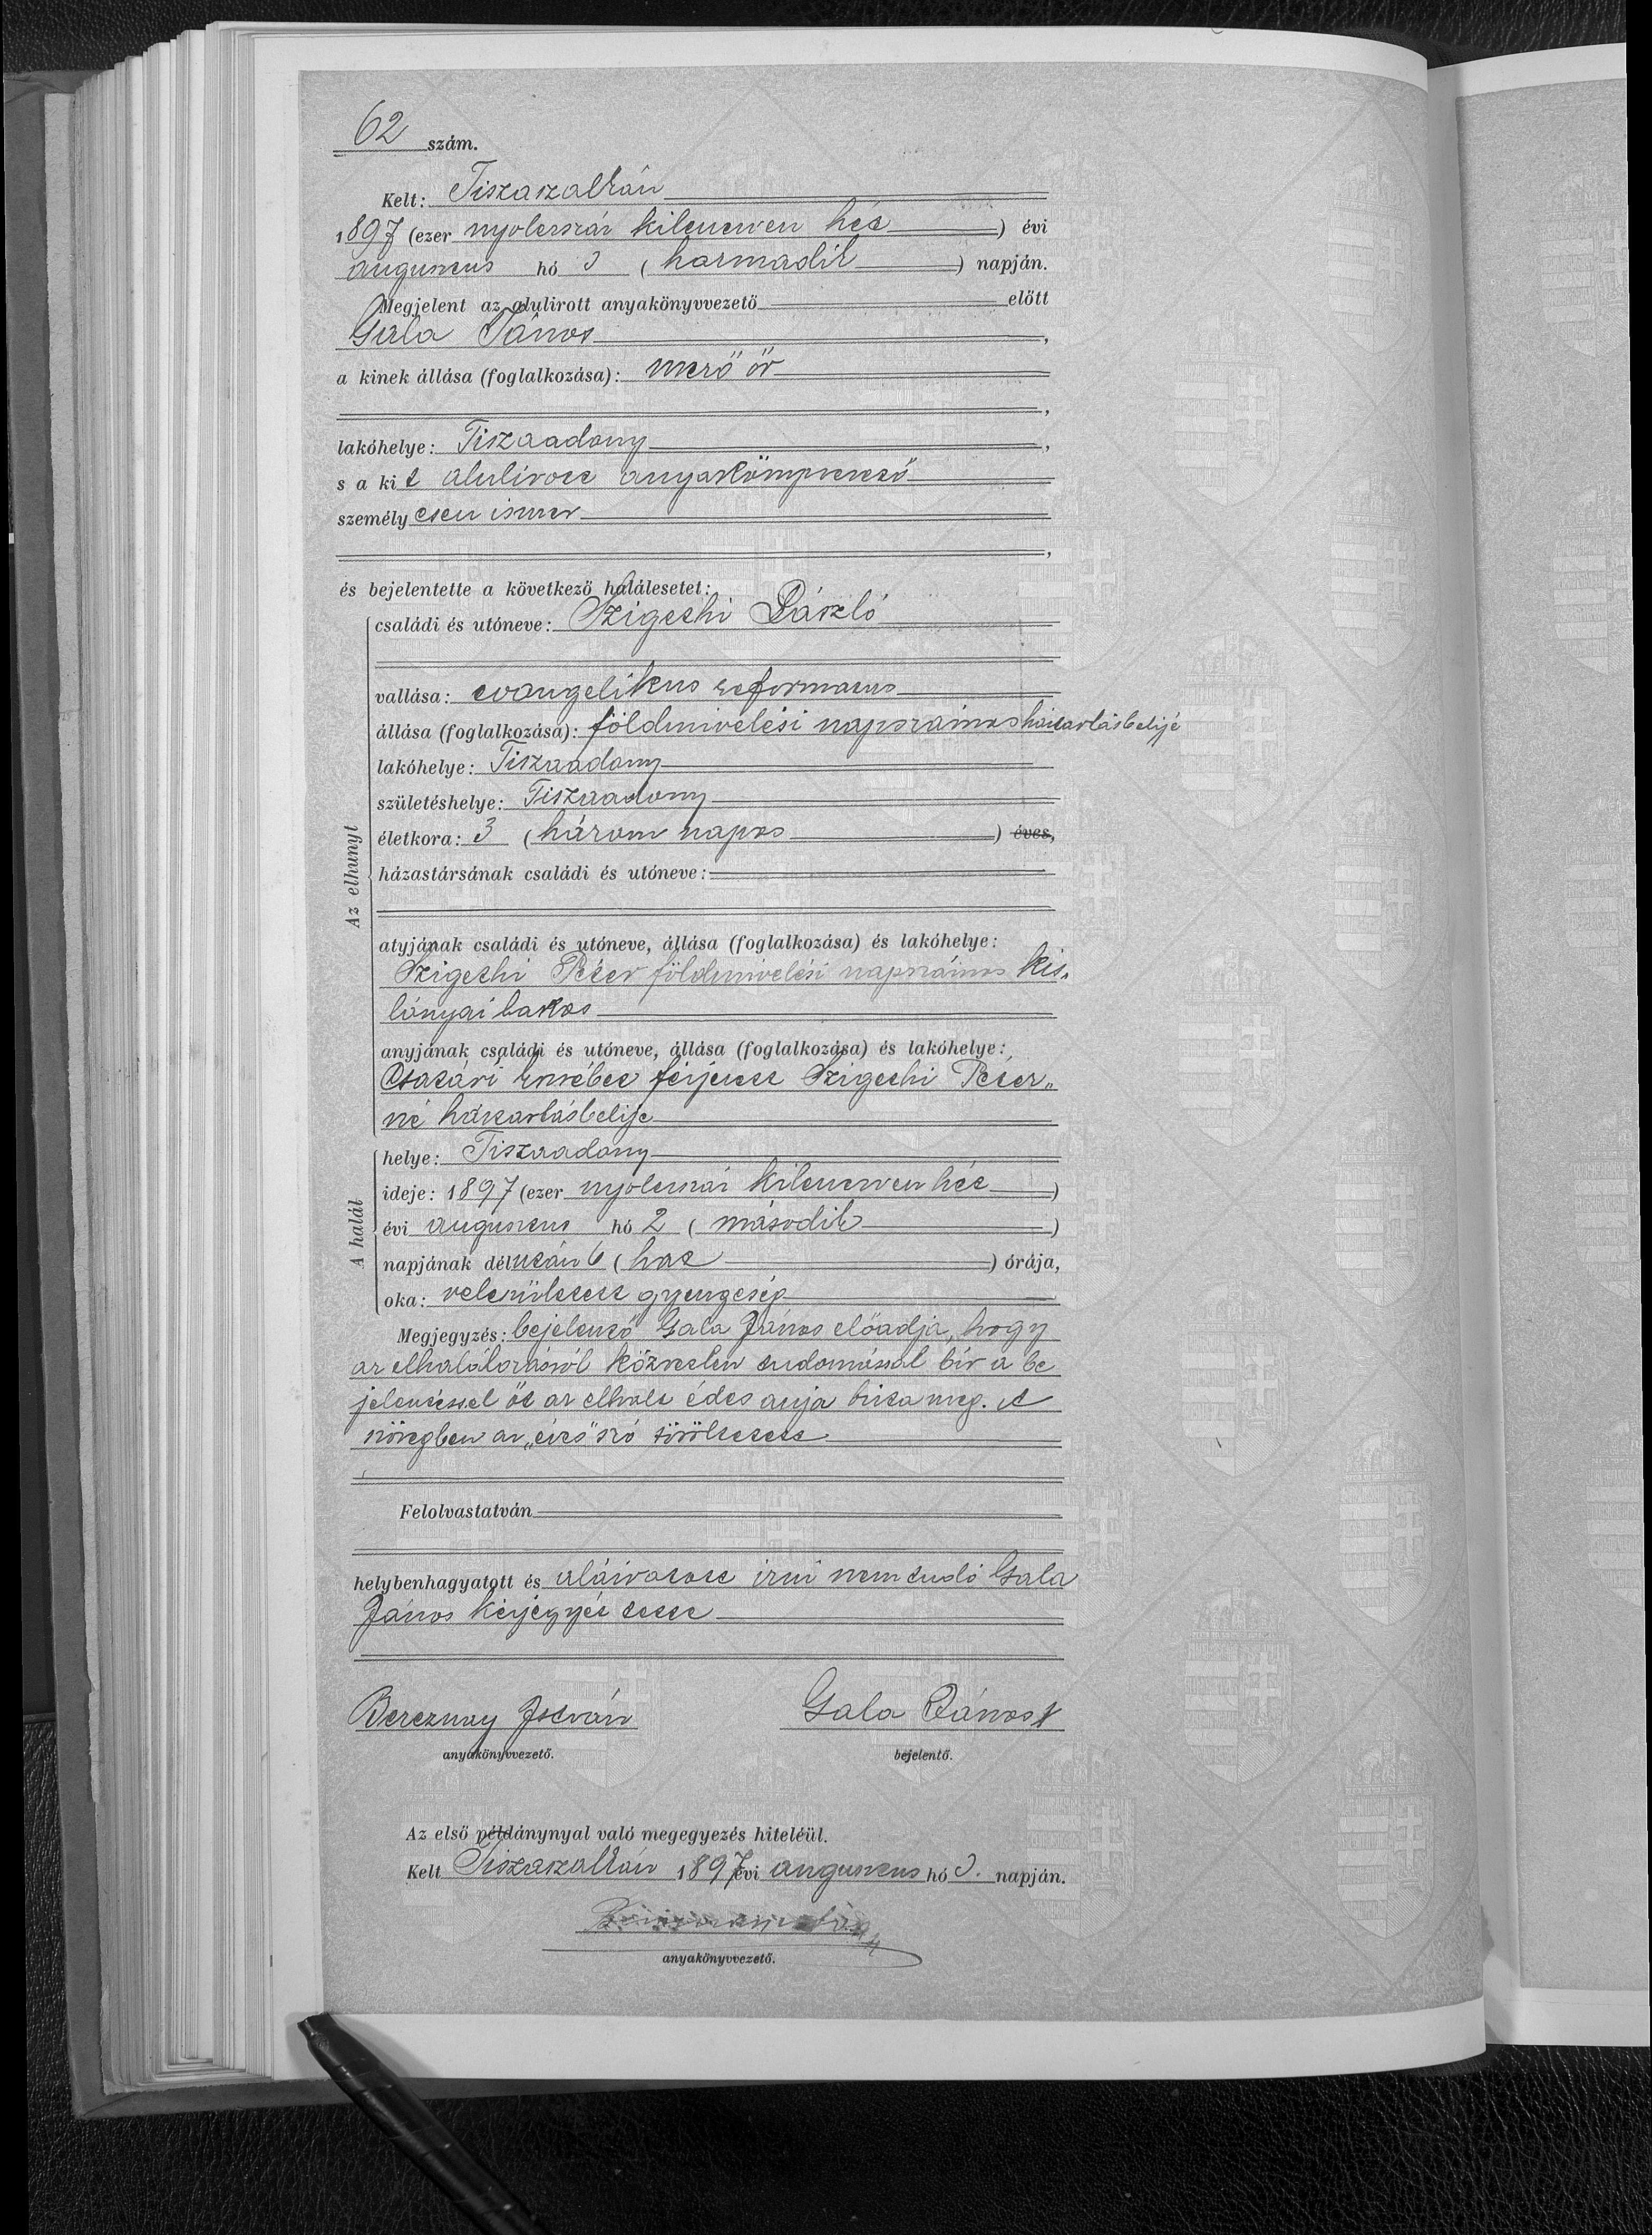 62 szám.
Kelt: Tiszaszalkán
1897 (ezer nyolczszáz kilenczven hét) évi
augusztus hó 3 (harmadik) napján.
Megjelent az alulirott anyakönyvvezető előtt
Gala János,
a kinek állása (foglalkozása): mező őr
,
lakóhelye: Tiszaadony,
s a kit alulirott anyakönyvvezető
személyesen ismer
,
és bejelentette a következő halálesetet:
Az elhunyt
családi és utóneve: Szigethi László
vallása: evangelikus reformatus
állása (foglalkozása): földmivelési napszámos háztartásbelije
lakóhelye: Tiszaadony
születéshelye: Tiszaadony
életkora: 3 (három napos) éves,
házastársának családi és utóneve:
atyjának családi és utóneve, állása (foglalkozása) és lakóhelye:
Szigethi Péter földmivelési napszámos kis-
lónyai lakos
anyjának családi és utóneve, állása (foglalkozása) és lakóhelye:
Csatári Erzsébet férjezett Szigethi Péter-
né háztartásbelije
A halál
helye: Tiszaadony
ideje: 1897 (ezer nyolczszáz kilenczven hét)
évi augusztus hó 2 (második)
napjának délután 6 (hat) órája,
oka: veleszületett gyengeség
Megjegyzés: bejelentő Gala János előadja, hogy
az elhalálozásról közvetlen tudomással bír a be
jelentéssel őt az elhalt édes anja bizta meg. A
szövegben az „éves" szó töröltetett
Felolvastatván
helybenhagyatott és aláíratott irni nem tudó Gala
János kézjegyét tette
Bereznay István
anyakönyvvezető.
Gala János X
bejelentő.
Az első példánynyal való megegyezés hiteléül.
Kelt Tiszaszalkán 1897 évi augusztus hó 3. napján.
anyakönyvvezető.